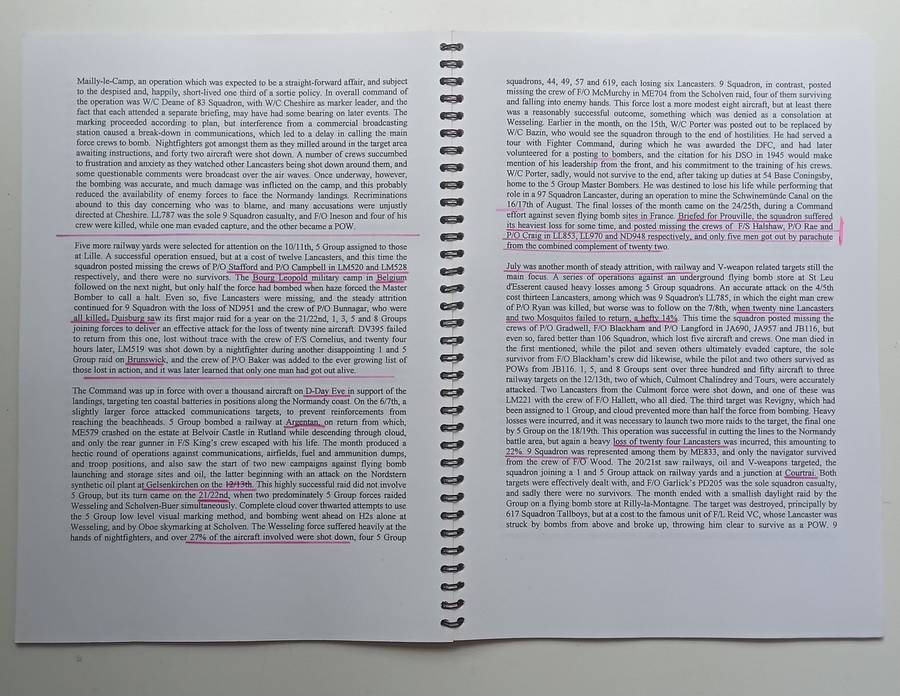 Mailly-le-Camp, an operation which was expected to be a straight-forward affair, and subject
to the despised and, happily, short-lived one third of a sortie policy. In overall command of
the operation was W/C Deane of 83 Squadron, with W/C Cheshire as marker leader, and the
fact that each attended a separate briefing, may have had some bearing on later events. The
marking proceeded according to plan, but interference from a commercial broadcasting
station caused a break-down in communications, which led to a delay in calling the main
force crews to bomb. Nightfighters got amongst them as they milled around in the target area
awaiting instructions, and forty two aircraft were shot down. A number of crews succumbed
to frustration and anxiety as they watched other Lancasters being shot down around them, and
some questionable comments were broadcast over the air waves. Once underway, however,
the bombing was accurate, and much damage was inflicted on the camp, and this probably
reduced the availability of enemy forces to face the Normandy landings. Recriminations
abound to this day concerning who was to blame, and many accusations were unjustly
directed at Cheshire. LL787 was the sole 9 Squadron casualty, and F/O Ineson and four of his
crew were killed, while one man evaded capture, and the other became a POW.
Five more railway yards were selected for attention on the 10/11th, 5 Group assigned to those
at Lille. A successful operation ensued, but at a cost of twelve Lancasters, and this time the
squadron posted missing the crews of P/O Stafford and P/O Campbell in LM520 and LM528
respectively, and there were no survivors. The Bourg Leopold military camp in Belgium
followed on the next night, but only half the force had bombed when haze forced the Master
Bomber to call a halt. Even so, five Lancasters were missing, and the steady attrition
continued for 9 Squadron with the loss of ND951 and the crew of P/O Bunnagar, who were
all killed. Duisburg saw its first major raid for a year on the 21/22nd, 1, 3, 5 and 8 Groups
joining forces to deliver an effective attack for the loss of twenty nine aircraft. DV395 failed
to return from this one, lost without trace with the crew of F/S Cornelius, and twenty four
hours later, LM519 was shot down by a nightfighter during another disappointing 1 and 5
Group raid on Brunswick, and the crew of P/O Baker was added to the ever growing list of
those lost in action, and it was later learned that only one man had got out alive.
The Command was up in force with over a thousand aircraft on D-Day Eve in support of the
landings, targeting ten coastal batteries in positions along the Normandy coast. On the 6/7th, a
slightly larger force attacked communications targets, to prevent reinforcements from
reaching the beachheads. 5 Group bombed a railway at Argentan, on return from which,
ME579 crashed on the estate at Belvoir Castle in Rutland while descending through cloud,
and only the rear gunner in F/S King's crew escaped with his life. The month produced a
hectic round of operations against communications, airfields, fuel and ammunition dumps,
and troop positions, and also saw the start of two new campaigns against flying bomb
launching and storage sites and oil, the latter beginning with an attack on the Nordstern
synthetic oil plant at Gelsenkirchen on the 12/13th. This highly successful raid did not involve
5 Group, but its turn came on the 21/22nd, when two predominately 5 Group forces raided
Wesseling and Scholven-Buer simultaneously. Complete cloud cover thwarted attempts to use
the 5 Group low level visual marking method, and bombing went ahead on H2s alone at
Wesseling, and by Oboe skymarking at Scholven. The Wesseling force suffered heavily at the
hands of nightfighters, and over 27% of the aircraft involved were shot down, four 5 Group
squadrons, 44, 49, 57 and 619, each losing six Lancasters. 9 Squadron, in contrast, posted
missing the crew of F/O McMurchy in ME704 from the Scholven raid, four of them surviving
and falling into enemy hands. This force lost a more modest eight aircraft, but at least there
was a reasonably successful outcome, something which was denied as a consolation at
Wesseling. Earlier in the month, on the 15th, W/C Porter was posted out to be replaced by
W/C Bazin, who would see the squadron through to the end of hostilities. He had served a
tour with Fighter Command, during which he was awarded the DFC, and had later
volunteered for a posting to bombers, and the citation for his DSO in 1945 would make
mention of his leadership from the front, and his commitment to the training of his crews.
W/C Porter, sadly, would not survive to the end, after taking up duties at 54 Base Coningsby,
home to the 5 Group Master Bombers. He was destined to lose his life while performing that
role in a 97 Squadron Lancaster, during an operation to mine the Schwinemünde Canal on the
16/17th of August. The final losses of the month came on the 24/25th, during a Command
effort against seven flying bomb sites in France. Briefed for Prouville, the squadron suffered
its heaviest loss for some time, and posted missing the crews of  F/S Halshaw, P/O Rae and
P/O Craig in LL853, LL970 and ND948 respectively, and only five men got out by parachute
from the combined complement of twenty two.
July was another month of steady attrition, with railway and V-weapon related targets still the
main focus. A series of operations against an underground flying bomb store at St Leu
d'Esserent caused heavy losses among 5 Group squadrons. An accurate attack on the 4/5th
cost thirteen Lancasters, among which was 9 Squadron's LL785, in which the eight man crew
of P/O Ryan was killed, but worse was to follow on the 7/8th, when twenty nine Lancasters
and two Mosquitos failed to return, a hefty 14%. This time the squadron posted missing the
crews of P/O Gradwell, F/O Blackham and P/O Langford in JA690, JA957 and JB116, but
even so, fared better than 106 Squadron, which lost five aircraft and crews. One man died in
the first mentioned, while the pilot and seven others ultimately evaded capture, the sole
survivor from F/O Blackham's crew did likewise, while the pilot and two others survived as
POWs from JB116. 1, 5, and 8 Groups sent over three hundred and fifty aircraft to three
railway targets on the 12/13th, two of which, Culmont Chalindrey and Tours, were accurately
attacked. Two Lancasters from the Culmont force were shot down, and one of these was
LM221 with the crew of F/O Hallett, who all died. The third target was Revigny, which had
been assigned to 1 Group, and cloud prevented more than half the force from bombing. Heavy
losses were incurred, and it was necessary to launch two more raids to the target, the final one
by 5 Group on the 18/19th. This operation was successful in cutting the lines to the Normandy
battle area, but again a heavy loss of twenty four Lancasters was incurred, this amounting to
22%. 9 Squadron was represented among them by ME833, and only the navigator survived
from the crew of F/O Wood. The 20/21st saw railways, oil and V-weapons targeted, the
squadron joining a 1 and 5 Group attack on railway yards and a junction at Courtrai. Both
targets were effectively dealt with, and F/O Garlick's PD205 was the sole squadron casualty,
and sadly there were no survivors. The month ended with a smallish daylight raid by the
Group on a flying bomb store at Rilly-la-Montagne. The target was destroyed, principally by
617 Squadron Tallboys, but at a cost to the famous unit of F/L Reid VC, whose Lancaster was
struck by bombs from above and broke up, throwing him clear to survive as a POW. 9